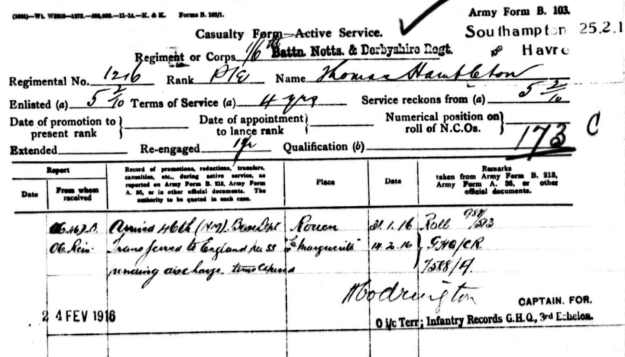 Forms B. 103/1
Army Form B. 103.
Casualty Form—Active Service.
Southampton 25.2.1
Havre
Regiment or Corps 1/6th Battn. Notts. & Derbyshire Regt.
Regimental No. 1216 Rank Pte Name Thomas Hambleton
Enlisted (a) 5/2/10 Terms of Service (a) 4 yrs Service reckons from (a) 5/2/10
Date of promotion to present rank Date of appointment to lance rank Numerical position on roll of N.C.Os.
173 C
Extended Re-engaged 1 yr Qualification (b)
Report
Date From whom received
Record of promotions, reductions, transfers, casualties, etc., during active service, as reported on Army Form B. 213, Army Form A. 36, or in other official documents. The authority to be quoted in each case.
Place
Date
Remarks taken from Army Form B. 213, Army Form A. 36, or other official documents.
Arrived 46th Base Dept Rouen 31.1.16 Roll
Transferred to England "Marguerite" 14.2.16
discharge
24 FEV 1916
CAPTAIN. FOR.
O i/c Terr; Infantry Records G.H.Q., 3rd Echelon.